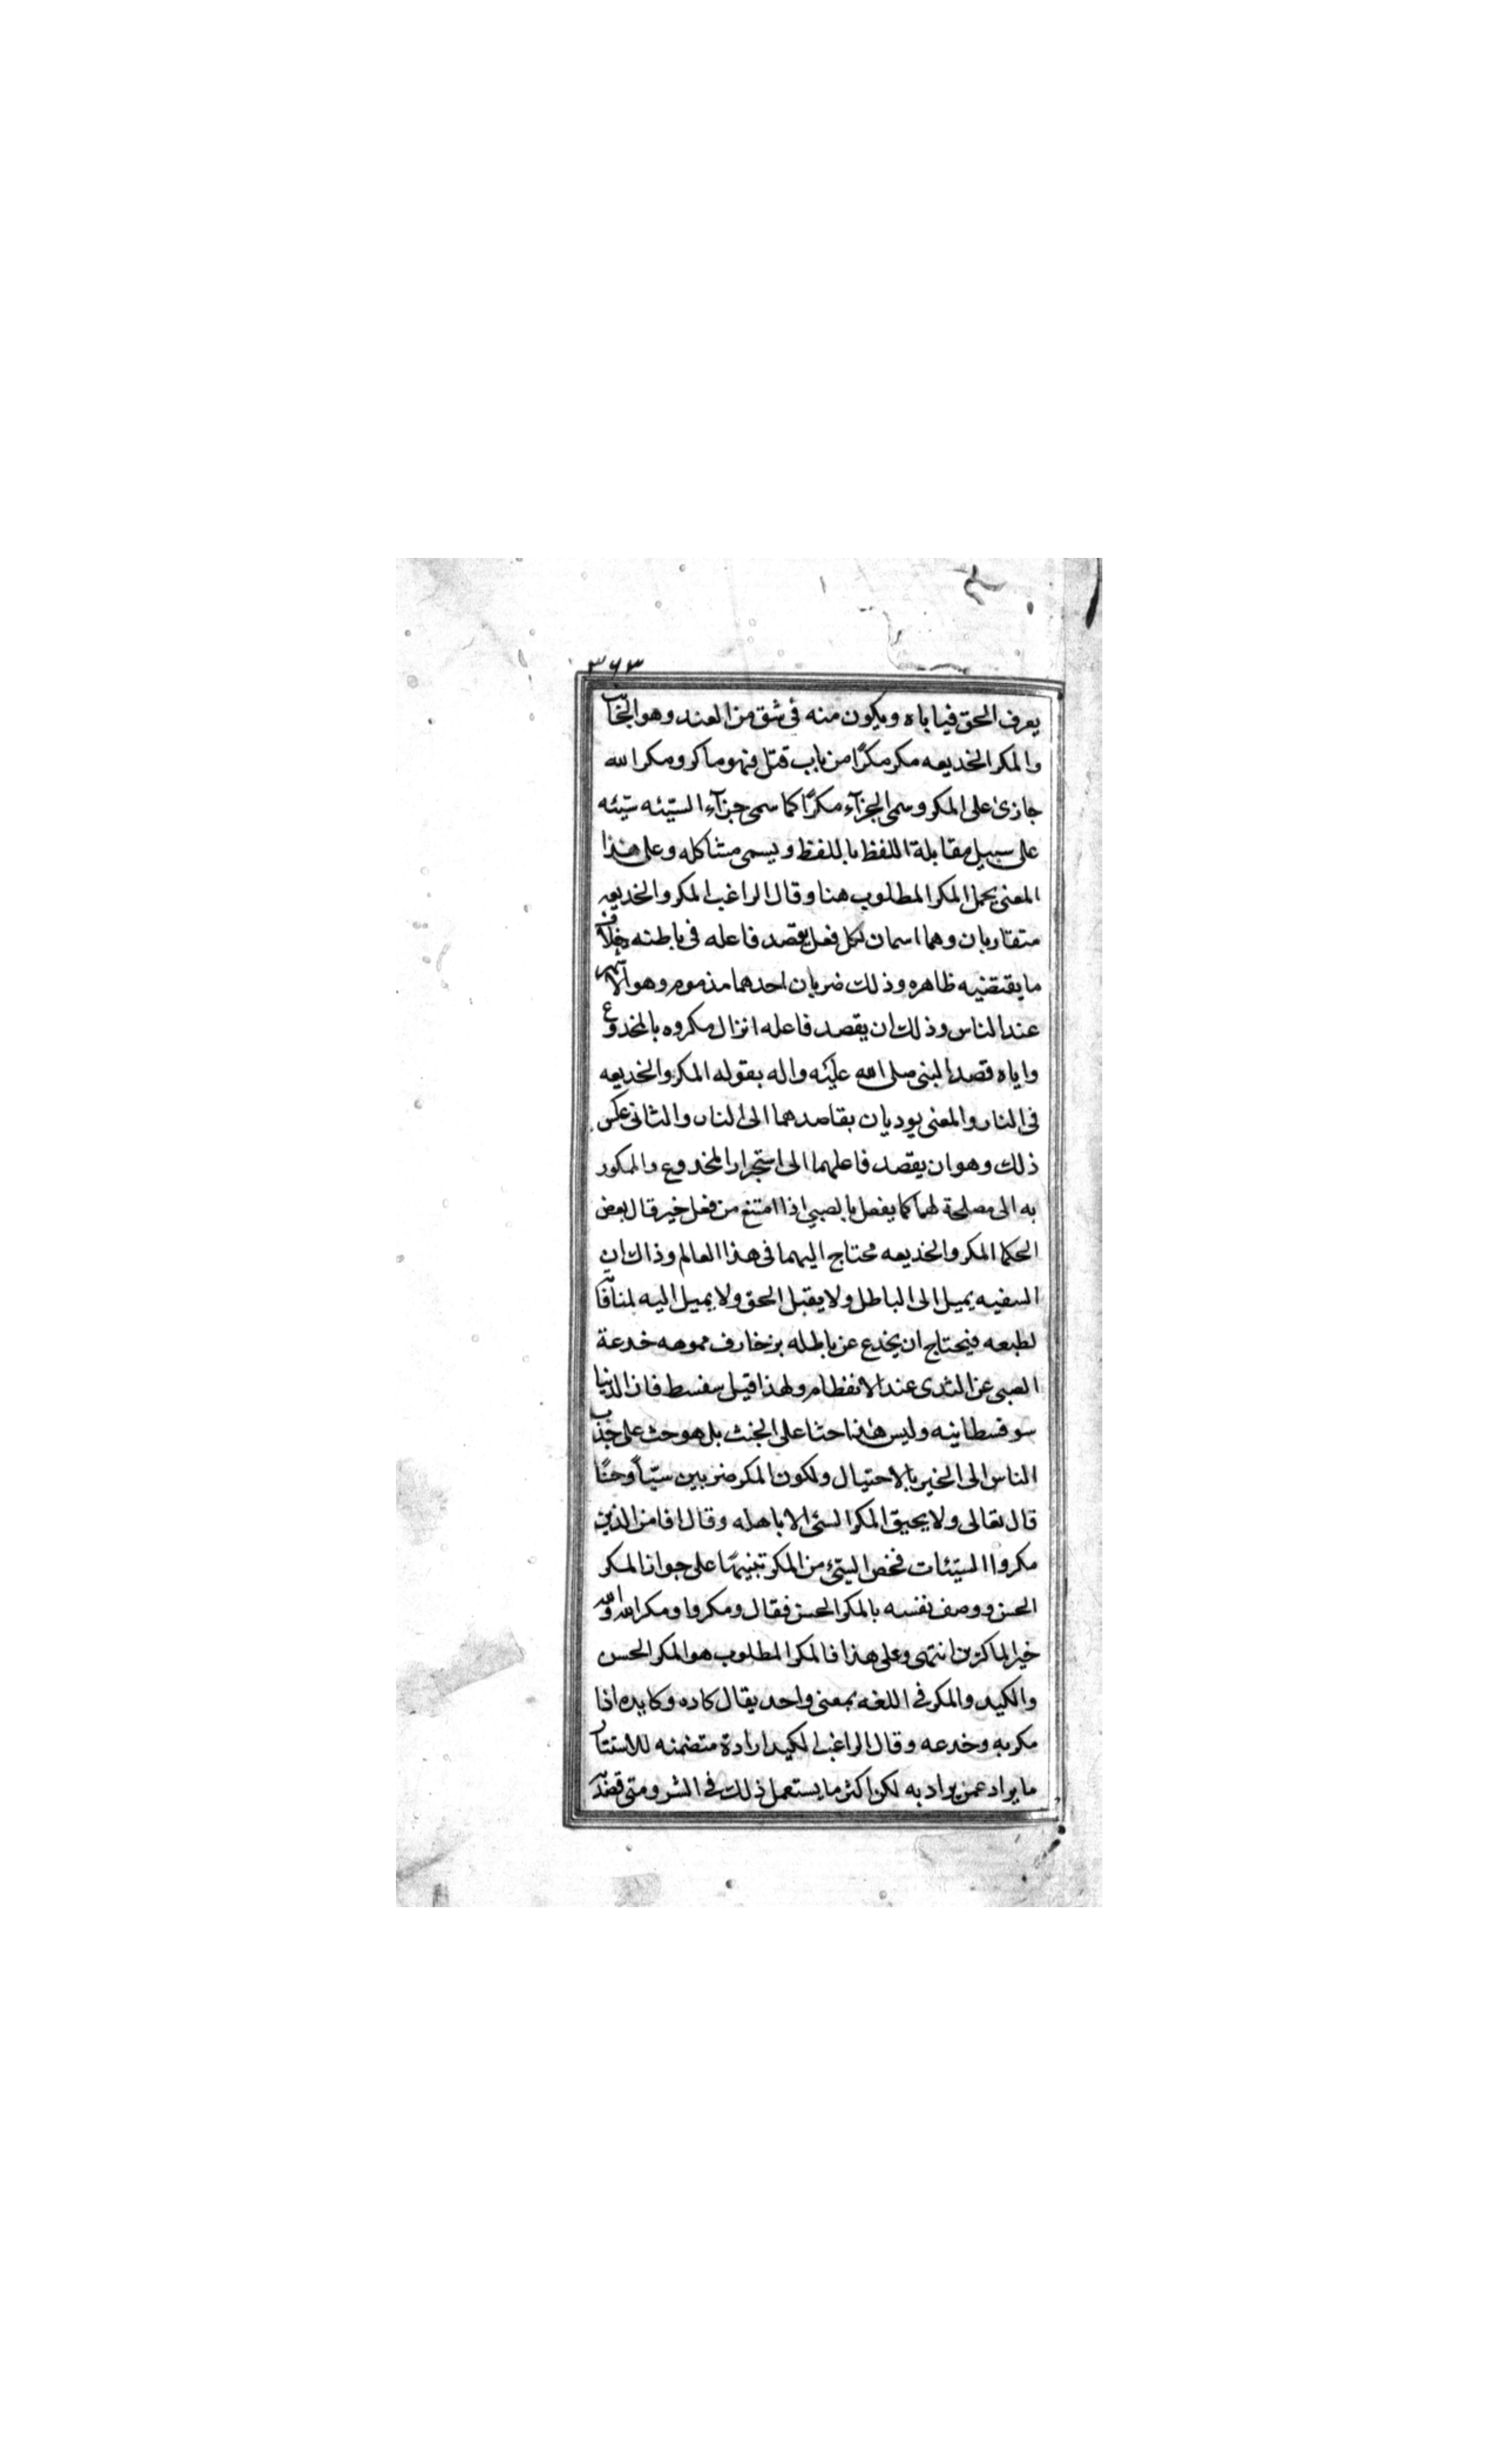 ٣٦٣
يعرف الحق فياباه ويكون منه فى شق من العند وهو الجانب
والمكر الخديعه مكر مكرًا من باب قتل فهو ماكر ومكر الله
جازى على المكر وسمى الجزآء مكرًا كما سمى جزآء السيّئه سيّئه
على سبيل مقابلة اللفظ باللفظ ويسمى مشاكله وعلى هذا
المعنى يحمل المكر المطلوب هنا وقال الراغب المكر والخديعه
متقاربان وهما اسمان لكل فعل يقصد فاعله فى باطنه خلاف
ما يقتضيه ظاهره وذلك ضربان احدهما مذموم وهو الاشهر
عند الناس وذلك ان يقصد فاعله انزال مكروه بالمخدوع
واياه قصد النبى صلى الله عليه واله بقوله المكر والخديعه
فى النار والمعنى يوديان بقاصدهما الى النار والثانى عكس
ذلك وهو ان يقصد فاعلهما الى استجرار المخدوع والممكور
به الى مصلحة لهما كما يفعل بالصبى اذا امتنع من فعل خير قال بعض
الحكما المكر والخديعه محتاج اليهما فى هذا العالم وذاك ان
السفيه يميل الى الباطل ولا يقبل الحق ولا يميل اليه لمنافاته
لطبعه فيحتاج ان يخدع عن باطله بزخارف مموهه خدعة
الصبى عن الثدى عند الانفطام ولهذا قيل سفسط فان الدنيا
سوفسطانيه وليس هذا حثا على الخبث بل هو حث على جذب
الناس الى الخير بالاحتيال ولكون المكر ضربين سيّئاً وحسنًا
قال تعالى ولا يحيق المكر السئ الا باهله وقال افامن الذين
مكروا السيّئات فخص السيّئ من المكر تنبيهًا على جواز المكر
الحسن ووصف نفسه بالمكر الحسن فقال ومكروا ومكر الله والله
خير الماكرين انتهى وعلى هذا فالمكر المطلوب هو المكر الحسن
والكيد والمكر فى اللغه بمعنى واحد يقال كاده وكايده اذا
مكر به وخدعه وقال الراغب الكيد ارادة متضمنه للاستتار
ما يراد عمن يراد به لكن اكثر ما يستعمل ذلك فى الشر ومتى قصد به